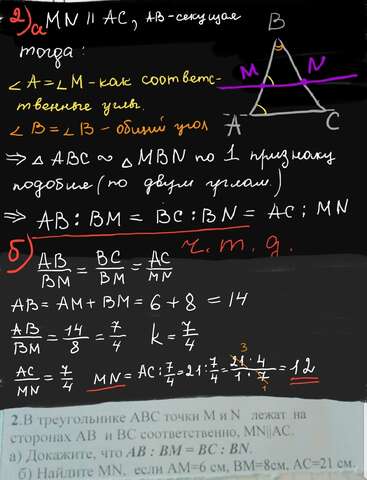 2) а) MN || AC, AB-секущая
тогда:
∠A=∠M-как соответс-
твенные углы.
∠B=∠B-общий угол
⇒ △ABC ∼ △MBN по 1 признаку
подобия (по двум углам)
⇒ AB:BM = BC:BN = AC:MN
ч.т.д.
B
M
N
A
C
б) AB/BM = BC/BM = AC/MN
AB=AM+BM=6+8=14
AB/BM = 14/8 = 7/4 k=7/4
AC/MN = 7/4 MN=AC:7/4=21:7/4= 21·4/1·7 =12
3
1
2.В треугольнике ABC точки M и N лежат на
сторонах AB и BC соответственно, MN||AC.
а) Докажите, что AB : BM = BC : BN.
б) Найдите MN, если AM=6 см, BM=8см, AC=21 см.